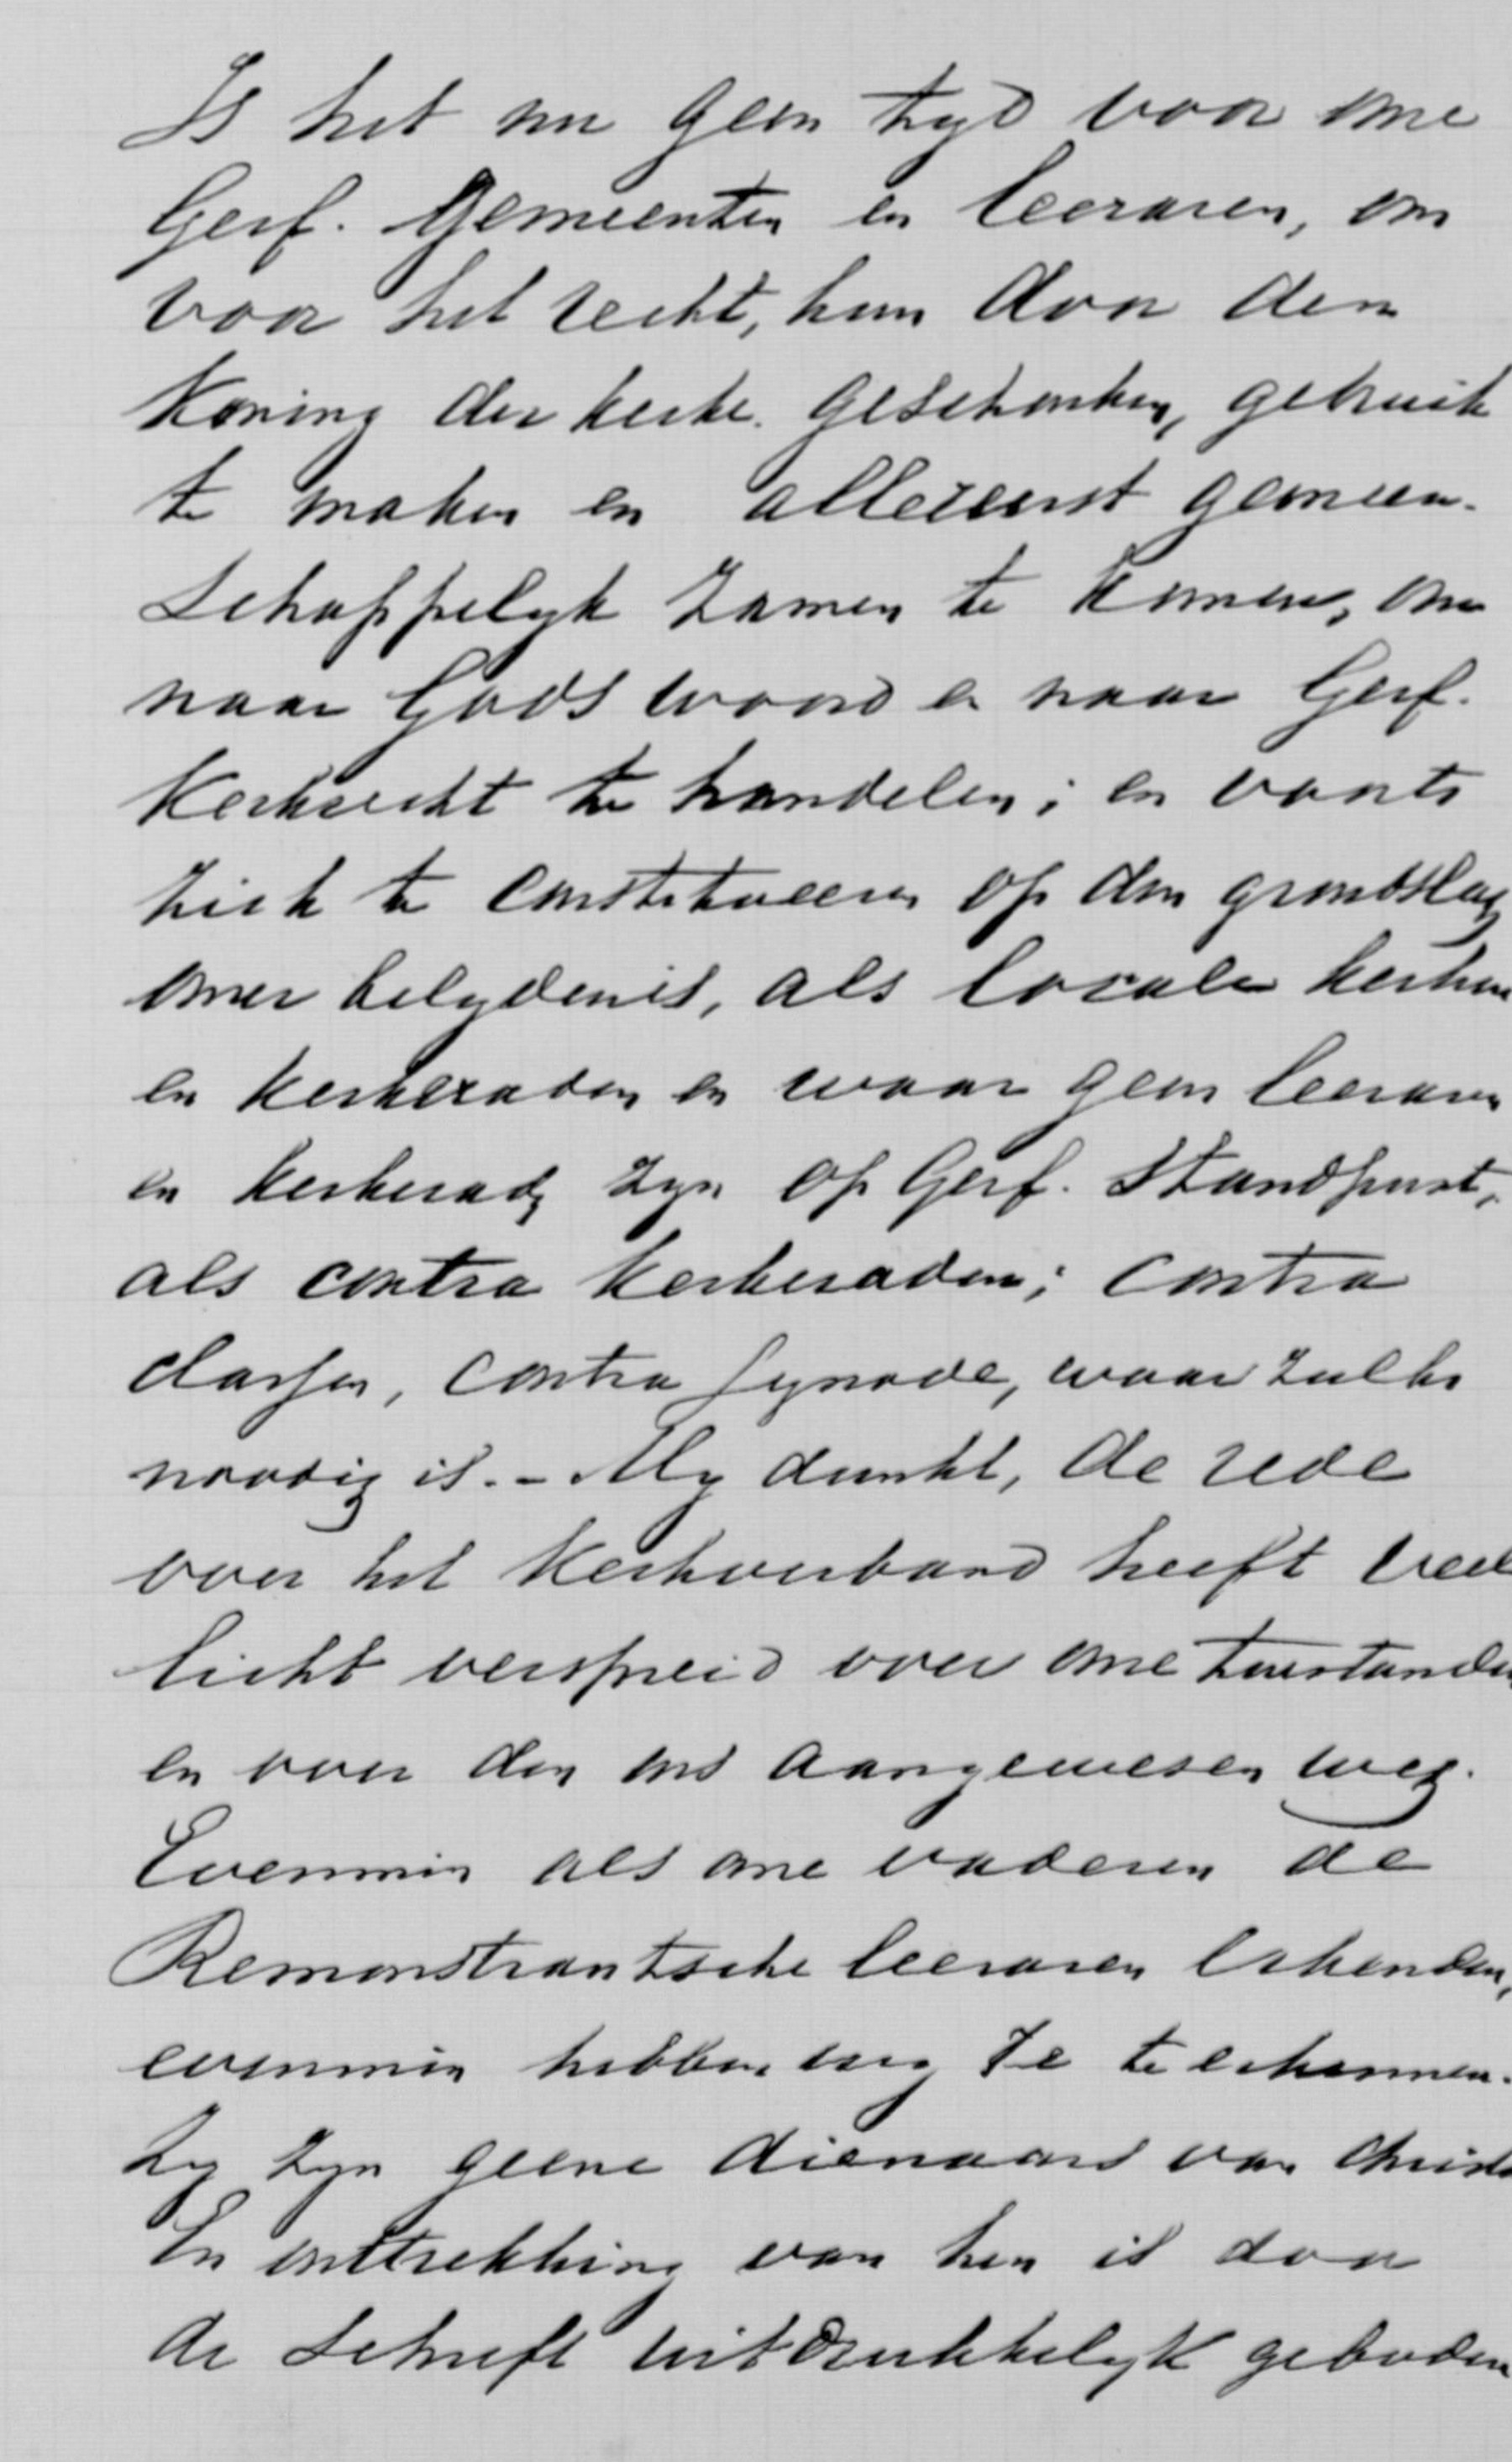 Is het nu geen tyd voor onze
Geref. Gemeenten en leeraren, om
voor het recht, hun door den
Koning der kerke geschonken, gebruik
te maken en allereerst gemeen-
schappelyk zamen te komen, om
naar Gods woord en naar Geref.
Kerkrecht te handelen; en voorts
zich te constitueeren op den grondslag
onzer belydenis, als locale kerken
en kerkeraden en waar geen leeraren
en kerkeraden zyn op Geref. Standpunt,
als contra kerkeraden; contra
classen, contra synode, waar zulks
noodig is. - My dunkt, de rede
over het Kerkverband heeft veel
licht verspreid over onze toestanden
en over den ons aangewesen weg.
Evenmin als onze vaderen de
Remonstrantsche leeraren erkenden,
evenmin hebben wy ze te erkennen.
Zy zyn geene dienaars van Christus
En onttrekking van hen is door
de Schrift uitdrukkelyk geboden